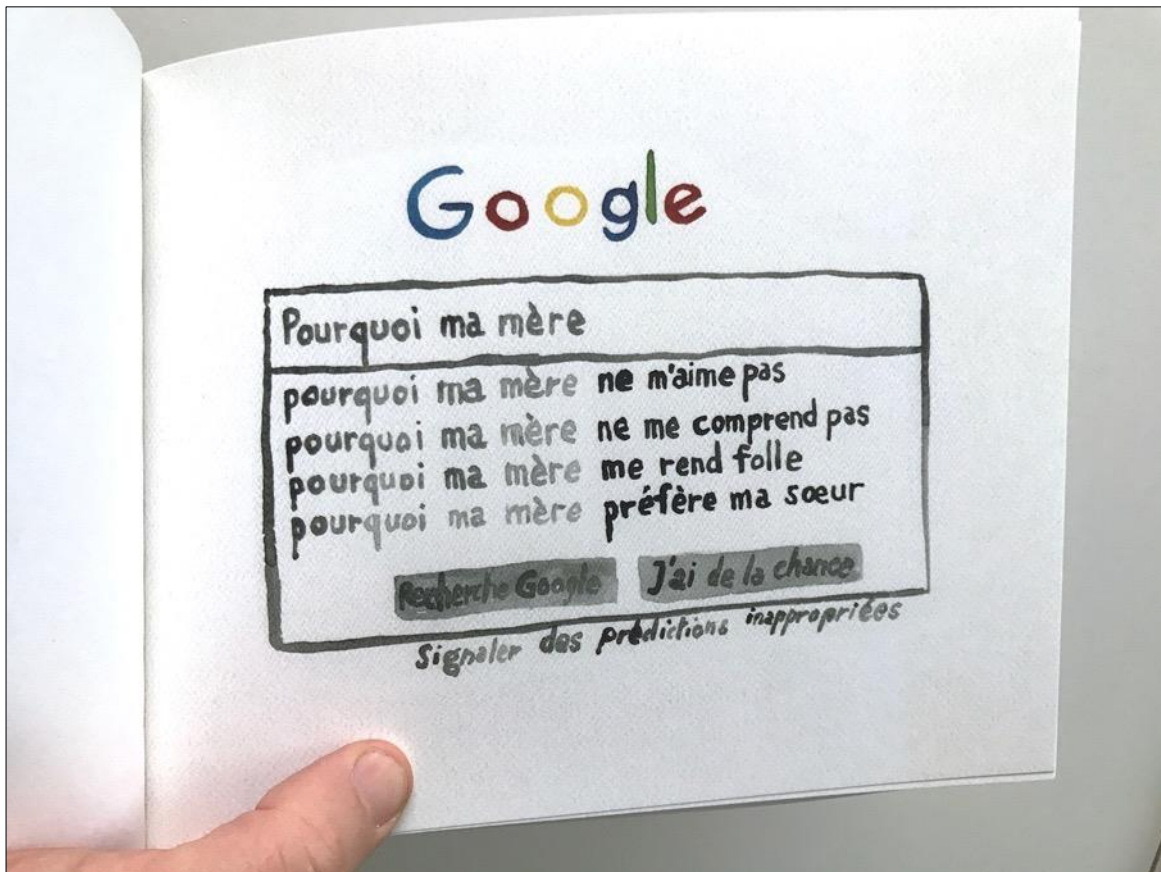 Google
Pourquoi ma mère
pourquoi ma mère ne m'aime pas
pourquoi ma mère ne me comprend pas
pourquoi ma mère me rend folle
pourquoi ma mère préfère ma sœur
Recherche Google J'ai de la chance
Signaler des prédictions inappropriées